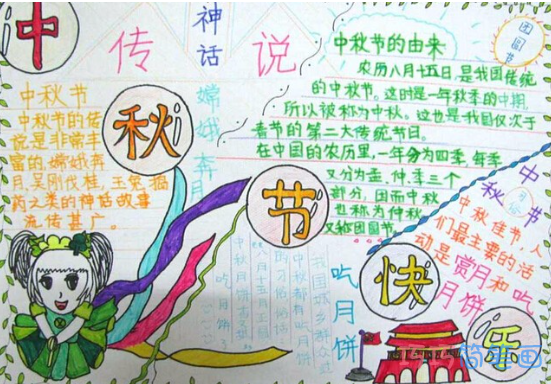 中秋节快乐
神话
传说
团圆节
中秋节的由来
农历八月十五日,是我国传统
的中秋节。这时是一年秋季的中期,
所以被称为中秋。这也是我国仅次于
春节的第二大传统节日。
在中国的农历里,一年分为四季,每季
又分为孟、仲、季三个
部分,因而中秋
也称为仲秋
又称团圆节
中秋节
中秋节的传
说是非常丰
富的,嫦娥奔
月,吴刚伐桂,玉兔捣
药之类的神话故事
流传甚广。
嫦娥奔月
中秋节
中秋佳节,人
们最主要的活
动是赏月和吃
月饼
吃月饼
吃月饼